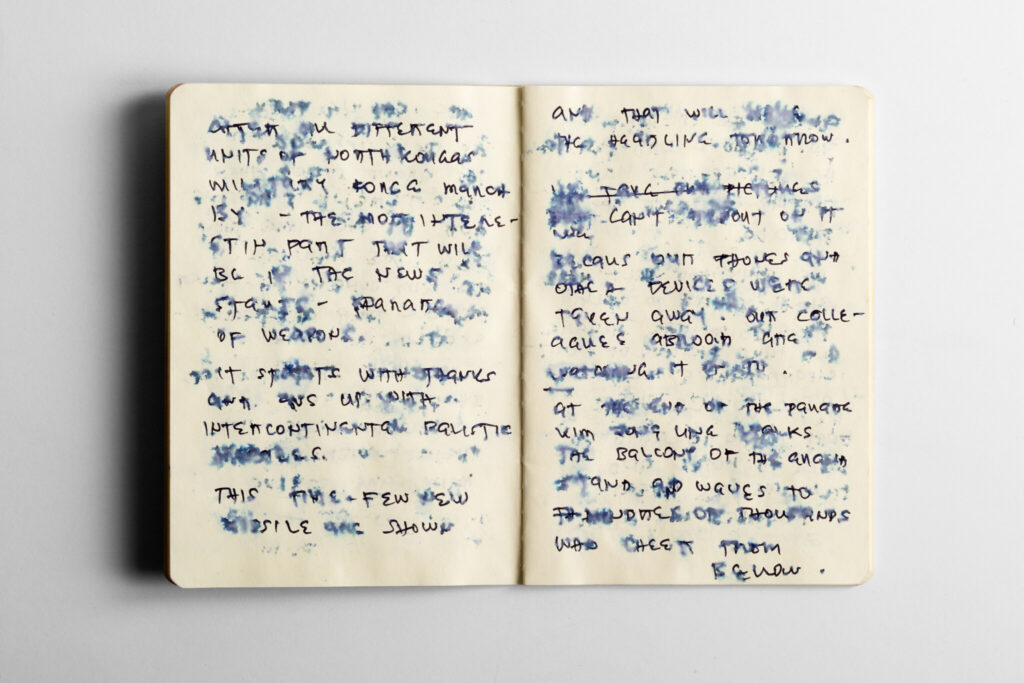 DIFFERENT
UNITS OF NORTH KOREAS
FORCE MARCH
BY - THE MOST INTERE-
STIN PART THAT WILL
BE I THE NEWS
STARTS - PARADE
OF WEAPONS.
IT STARTS WITH TANKS
AND ENS UP WITH
INTERCONTINENTAL BALISTIC
THIS TIME - FEW NEW
SHOWN
AND THAT WILL
THE HEADLINE TOMORROW.
WE TAKE OUR PICTURES
CAN'T OUT ON IT
BECAUS OUR PHONES AND
OTHER DEVICES WERE
TAKEN AWAY. OUR COLLE-
AGUES ABROAD ARE
IT
AT THE END OF THE PARADE
KIM JONG UNE WALKS
THE BALCONY OF THE GRAND
STAND AND WAVES TO
OF THOUSANDS
WHO CHEER FROM
BELLOW.